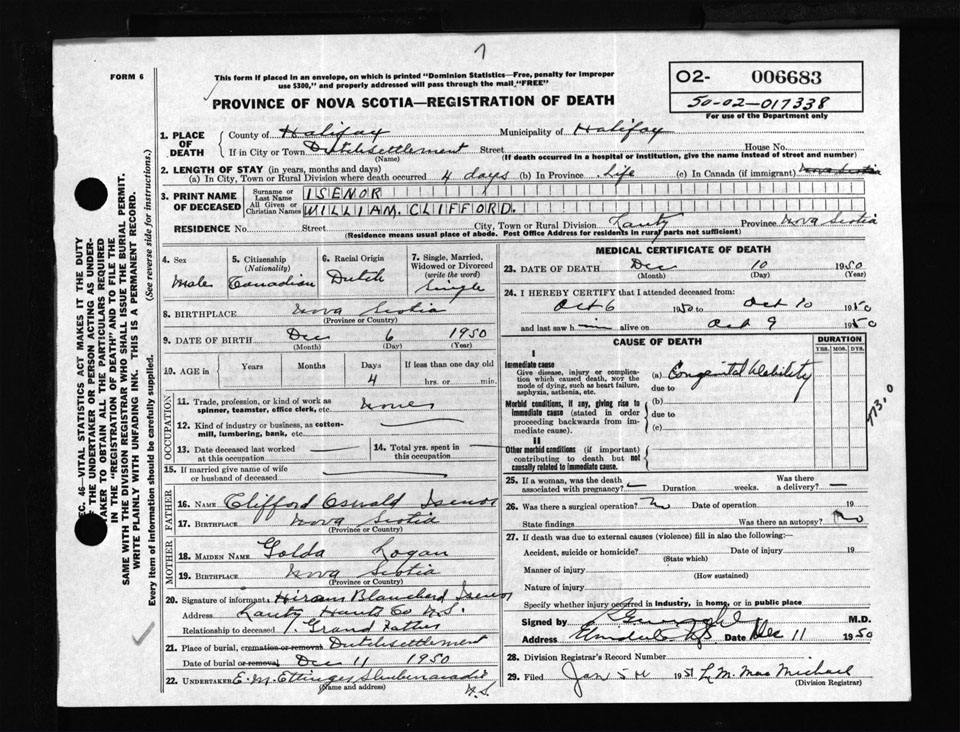 7
FORM 6
This form if placed in an envelope, on which is printed "Dominion Statistics—Free, penalty for improper
use $300," and properly addressed will pass through the mail "FREE"
PROVINCE OF NOVA SCOTIA—REGISTRATION OF DEATH
O2- 006683
50-02-017338
For use of the Department only
SEC. 46—VITAL STATISTICS ACT MAKES IT THE DUTY
OF THE UNDERTAKER OR PERSON ACTING AS UNDER-
TAKER TO OBTAIN ALL THE PARTICULARS REQUIRED
IN THE "REGISTRATION OF DEATH" AND TO FILE THE
SAME WITH THE DIVISION REGISTRAR WHO SHALL ISSUE THE BURIAL PERMIT.
WRITE PLAINLY WITH UNFADING INK. THIS IS A PERMANENT RECORD.
Every item of information should be carefully supplied. (See reverse side for instructions.)
1. PLACE OF DEATH
County of Halifax Municipality of Halifax
If in City or Town Dutchsettlement Street House No.
(Name) (If death occurred in a hospital or institution, give the name instead of street and number)
2. LENGTH OF STAY (in years, months and days)
(a) In City, Town or Rural Division where death occurred 4 days (b) In Province Life (c) In Canada (if immigrant) Nova Scotia
3. PRINT NAME OF DECEASED
Surname or Last Name ISENOR
All Given or Christian Names WILLIAM. CLIFFORD.
RESIDENCE No. Street City, Town or Rural Division Lantz Province Nova Scotia
(Residence means usual place of abode. Post Office Address for residents in rural parts not sufficient)
4. Sex Male
5. Citizenship (Nationality) Canadian
6. Racial Origin Dutch
7. Single, Married, Widowed or Divorced (write the word) Single
8. BIRTHPLACE Nova Scotia
(Province or Country)
9. DATE OF BIRTH Dec 6 1950
(Month) (Day) (Year)
10. AGE in Years Months Days 4 If less than one day old hrs. or min.
OCCUPATION
11. Trade, profession, or kind of work as spinner, teamster, office clerk, etc. None
12. Kind of industry or business, as cotton-mill, lumbering, bank, etc.
13. Date deceased last worked at this occupation
14. Total yrs. spent in this occupation
15. If married give name of wife or husband of deceased
FATHER
16. NAME Clifford Oswald Isenor
17. BIRTHPLACE Nova Scotia
(Province or Country)
MOTHER
18. MAIDEN NAME Golda Logan
19. BIRTHPLACE Nova Scotia
(Province or Country)
20. Signature of informant Hiram Blanchard Isenor
Address Lantz Hants Co N.S.
Relationship to deceased Grand Father
21. Place of burial, cremation or removal Dutchsettlement
Date of burial or removal Dec 11 1950
22. UNDERTAKER E. M. Ettinger Shubenacadie
(Name and address) N.S
MEDICAL CERTIFICATE OF DEATH
23. DATE OF DEATH Dec 10 1950
(Month) (Day) (Year)
24. I HEREBY CERTIFY that I attended deceased from:
Oct 6 1950 to Oct 10 1950
and last saw him alive on Oct 9 1950
CAUSE OF DEATH
DURATION
YRS. MOS. DYS.
I
Immediate cause
Give disease, injury or complica-
tion which caused death, NOT the
mode of dying, such as heart failure,
asphyxia, asthenia, etc.
(a) Congenital debility
due to
Morbid conditions, if any, giving rise to
immediate cause (stated in order
proceeding backwards from im-
mediate cause).
(b)
due to
(c)
II
Other morbid conditions (if important)
contributing to death but not
causally related to immediate cause.
773.0
25. If a woman, was the death associated with pregnancy? — Duration weeks. Was there a delivery? —
26. Was there a surgical operation? No Date of operation 19
State findings Was there an autopsy? No
27. If death was due to external causes (violence) fill in also the following:—
Accident, suicide or homicide? Date of injury 19
(State which)
Manner of injury
(How sustained)
Nature of injury
Specify whether injury occurred in industry, in home, or in public place
Signed by M.D.
Address NS Date Dec 11 1950
28. Division Registrar's Record Number
29. Filed Jan 5 1951 L. M. MacMichael
(Division Registrar)